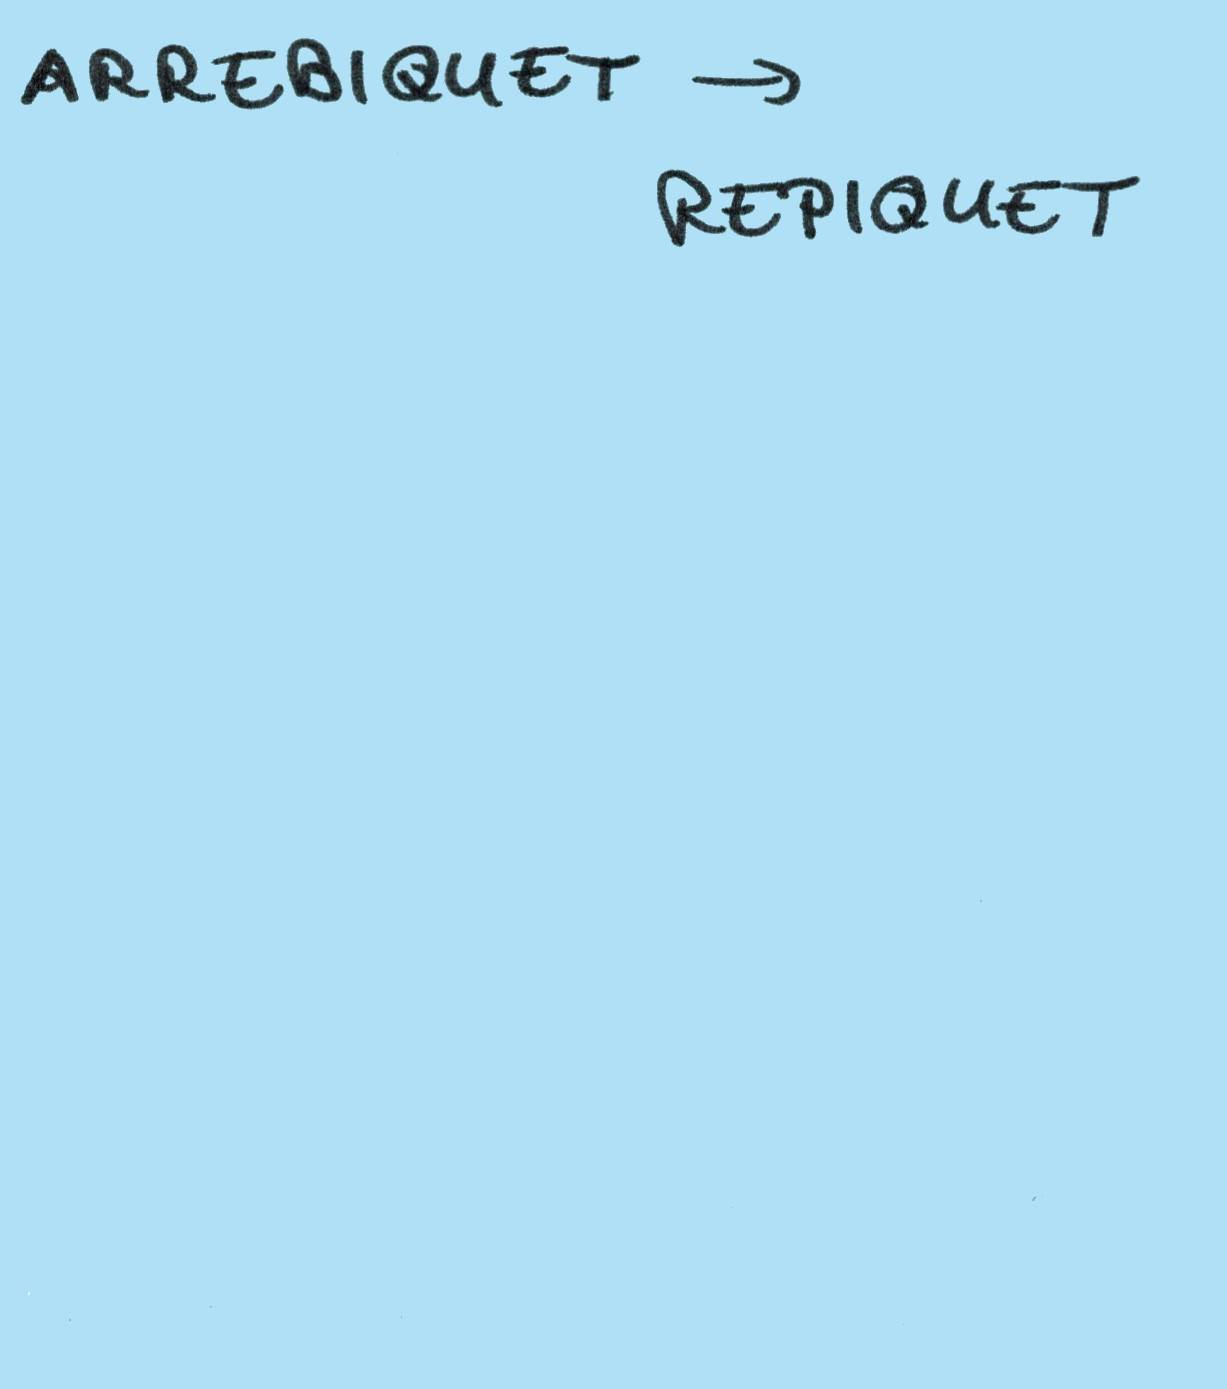 ARREBIQUET →
REPIQUET